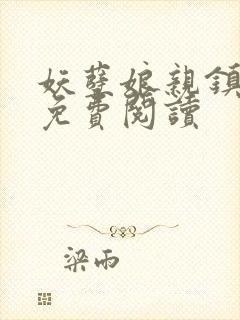 妖孽娘親鎮
免費閱讀
梁雨